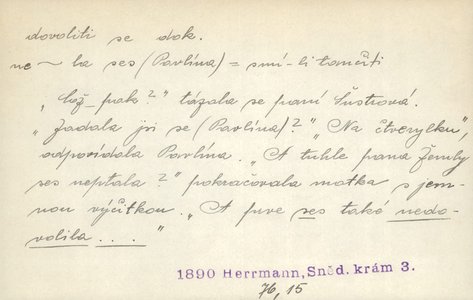 dovoliti se dok.
ne ~ la ses (Pavlína) = smí-li tančiti
„Což_pak?" tázala se paní Šustrová.
„Zadala jsi se (Pavlína)?" „Na čtverylku"
odpovídala Pavlína. „A tuhle pana Žemly
ses neptala?" pokračovala matka s jem-
nou výčitkou. „A prve ses také nedo-
volila . . . ."
1890 Herrmann, Sněd. krám 3.
76, 15